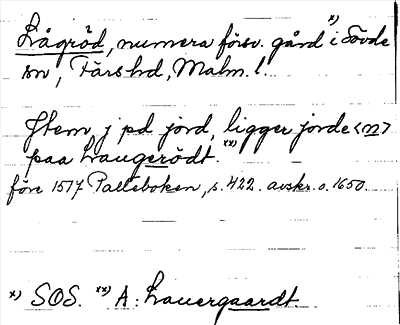 Lågröd, numera försv. gård x) i Sövde
sn, Färs hd, Malm. l.
Jtem, j pd jord, ligger jorde <m>
paa Laugerödt. xx)
före 1517 Palteboken, s. 422. avskr. o. 1650.
x) SOS. xx) A: Lauergaardt.